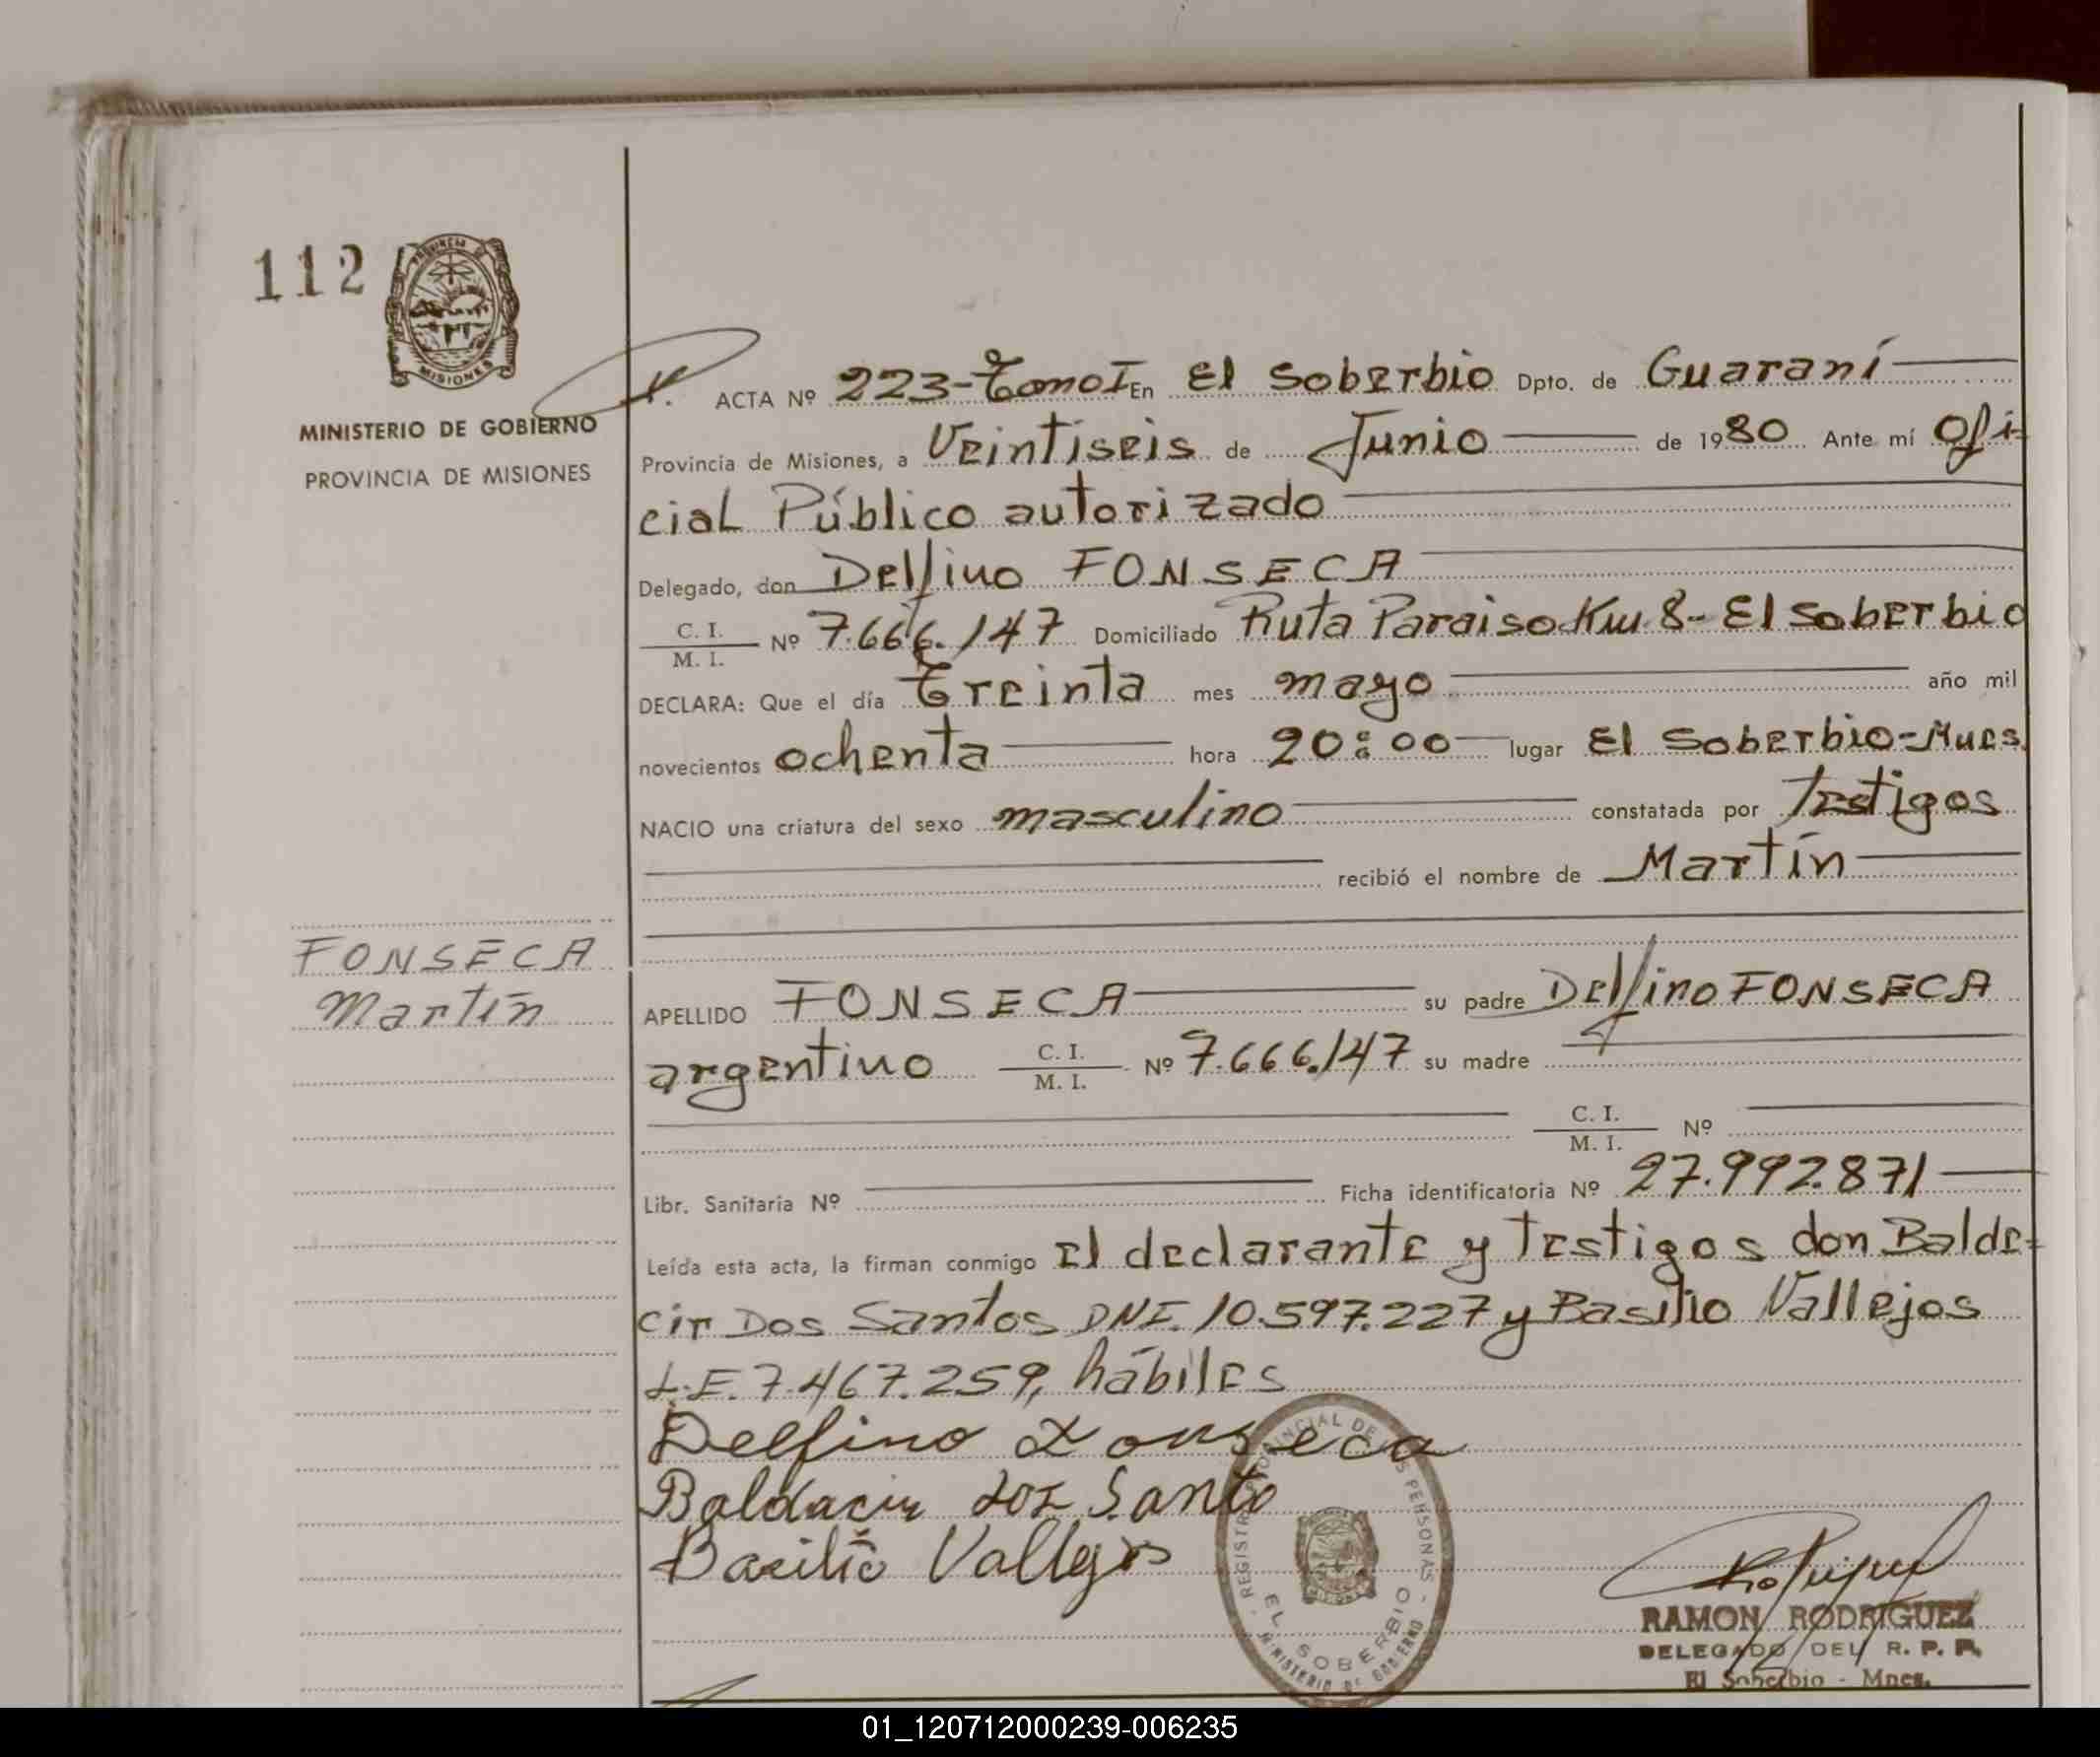 112
PROVINCIA DE
MISIONES
MINISTERIO DE GOBIERNO
PROVINCIA DE MISIONES
FONSECA
Martín
ACTA Nº 223-Tomo I En El Soberbio Dpto. de Guaraní
Provincia de Misiones, a Veintiseis de Junio de 1980 Ante mí Ofi-
cial Público autorizado
Delegado, don Delfino FONSECA
C. I. / M. I. Nº 7.666.147 Domiciliado Ruta Paraiso Km 8- El Soberbio
DECLARA: Que el día Treinta mes mayo año mil
novecientos ochenta hora 20:00 lugar El Soberbio-Mnes.
NACIO una criatura del sexo masculino constatada por Testigos
recibió el nombre de Martín
APELLIDO FONSECA su padre Delfino FONSECA
argentino C. I. / M. I. Nº 7.666.147 su madre
C. I. / M. I. Nº
Libr. Sanitaria Nº Ficha identificatoria Nº 27.992.871
Leída esta acta, la firman conmigo el declarante y testigos don Balde-
cir Dos Santos DNI. 10.597.227 y Basilio Vallejos
L.E. 7.467.259, hábiles
Delfino Fonseca
Baldacir dos Santo
Basilio Vallejos
REGISTRO PROVINCIAL DE LAS PERSONAS
EL SOBERBIO
MINISTERIO DE GOBIERNO
RAMON RODRIGUEZ
DELEGADO DEL R. P. P.
El Soberbio - Mnes.
01_120712000239-006235